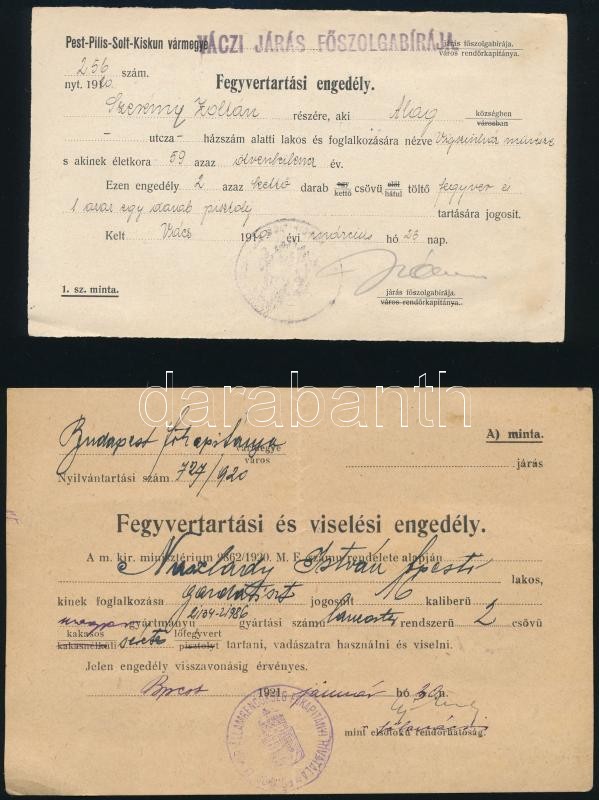 Pest-Pilis-Solt-Kiskun vármegye VÁCZI JÁRÁS FŐSZOLGABÍRÁJA járás főszolgabírája.
város rendőrkapitánya.
256 szám.
nyt. 1920.
Fegyvertartási engedély.
Szerémy Zoltán részére, aki Alag községben
városban
- utcza - házszám alatti lakos és foglalkozására nézve Vígszínház művésze
s akinek életkora 59 azaz ötvenkilenc év.
Ezen engedély 2 azaz kettő darab egy kettő csövű elől hátul töltő fegyver és
1 azaz egy darab pisztoly tartására jogosít.
Kelt Vács 1920 évi március hó 23 nap.
1. sz. minta.
járás főszolgabírája.
város rendőrkapitánya.
darabanth
Budapest főkapitánya
vármegye
város
A) minta.
járás
Nyilvántartási szám 727/920
Fegyvertartási és viselési engedély.
A m. kir. minisztérium 9862/1920. M. E. számu rendelete alapján
István bpesti lakos,
kinek foglalkozása jogosult 16 kaliberű
magyar gyártmányu gyártási számu rendszerű 2 csövű
kakasos
kakasnélküli
lőfegyvert
pisztolyt
tartani, vadászatra használni és viselni.
Jelen engedély visszavonásig érvényes.
Bpest 1921 január hó 30 n.
mint elsőfokú rendőrhatóság.